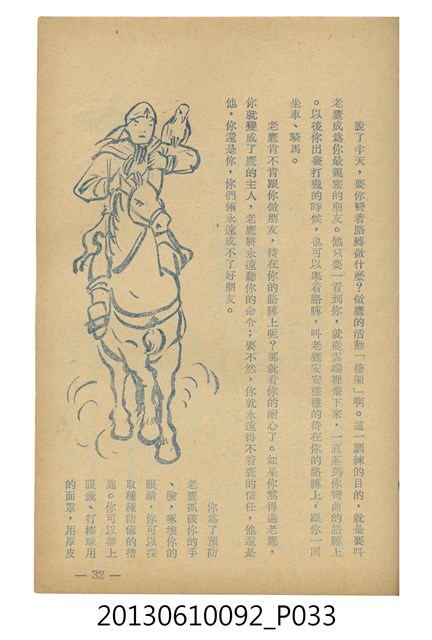 說了半天，要你彎着胳膊做什麼？做鷹的活動「棲架」啊。這一訓練的目的，就是要叫
老鷹成爲你最親密的朋友。他只要一看到你，就從雲端裡飛下來，一直落到你彎曲的胳膊上
。以後你出發打獵的時候，也可以架着胳膊，叫老鷹安安穩穩的待在你的胳膊上，跟你一同
坐車、騎馬。
老鷹肯不肯跟你做朋友，待在你的胳膊上呢？那就看你的耐心了。如果你熬得過老鷹，
你就變成了鷹的主人，老鷹將永遠聽你的命令；要不然，你就永遠得不着鷹的信任，他還是
他，你還是你，你們倆永遠成不了好朋友。
你爲了預防
老鷹抓破你的手
、臉，啄壞你的
眼睛，你可以採
取種種防備的措
施。你可以帶上
眼鏡、打棒球用
的面罩，用厚皮
— 32 —
20130610092_P033